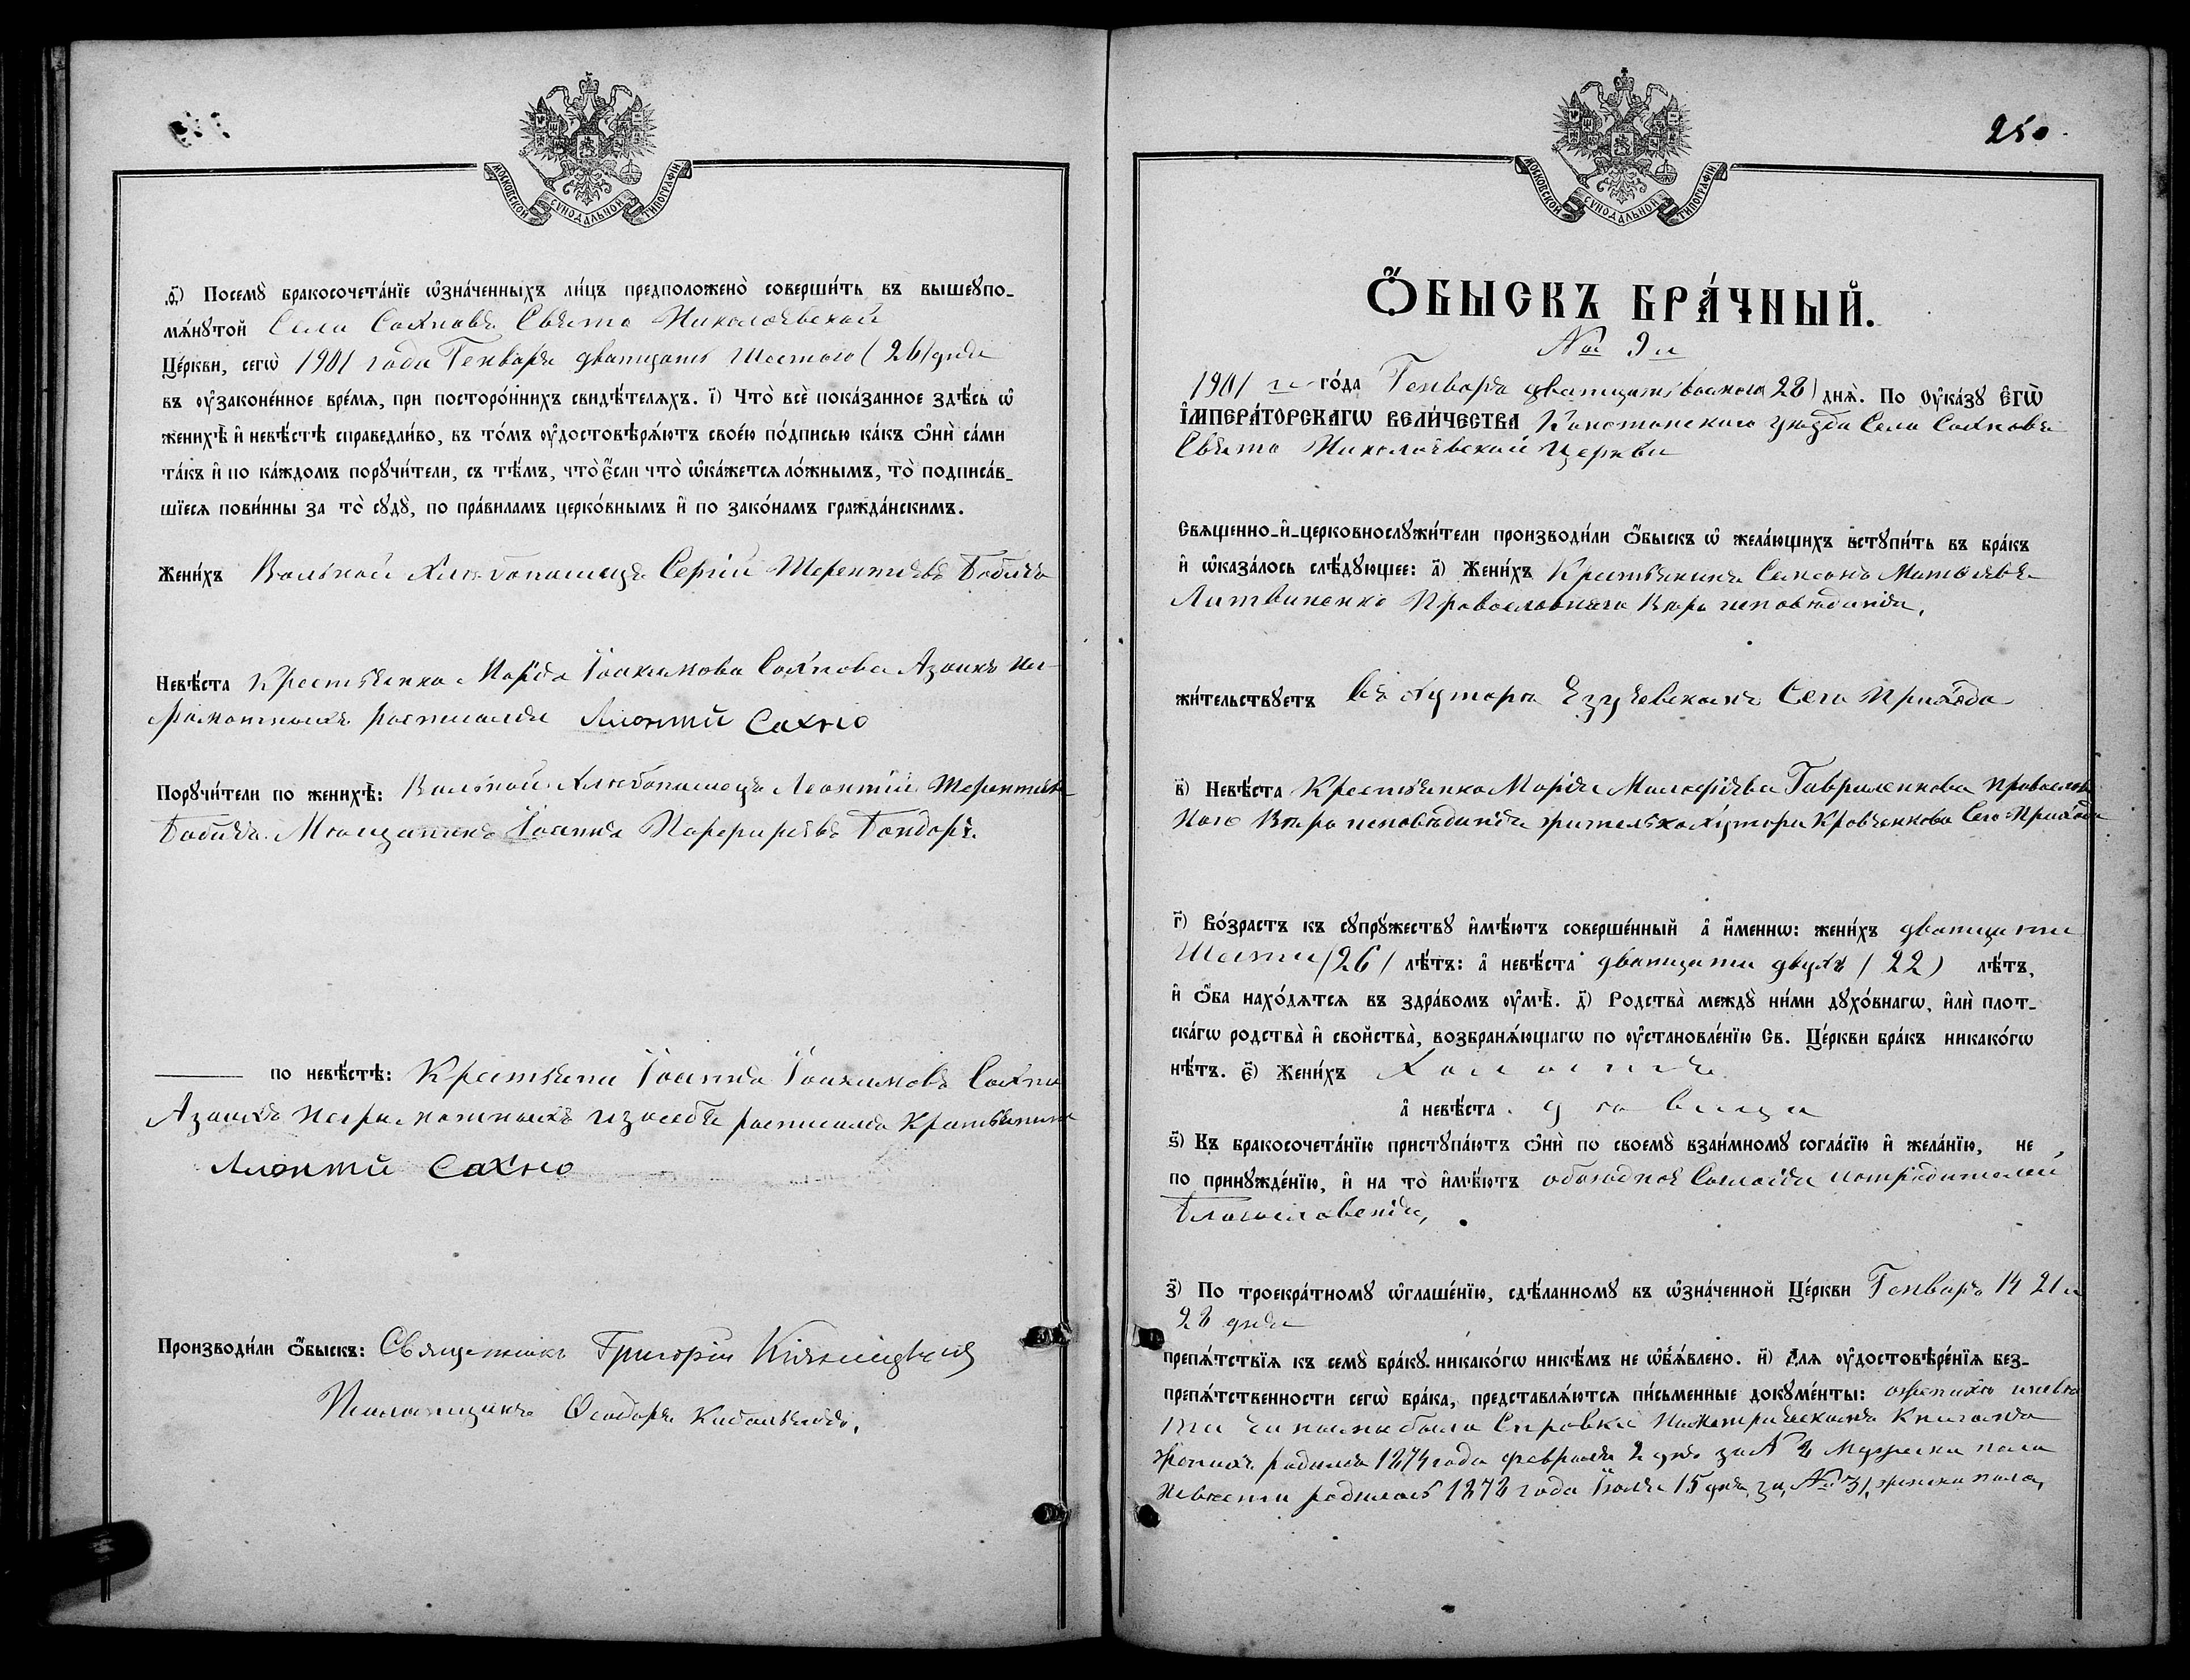 МОСКОВСКОЙ СѴНОДАЛЬНОЙ ТИПОГРАФІИ
.ѳ҃.) Посемꙋ̀ бракосочета́нїе ѡ҆зна́ченныхъ ли́цъ предположено̀ соверши́ть въ вышеꙋпо-
мѧ́нꙋтой Села Сахновъ Свято Николаевской
Це́ркви, сегѡ̀ 1901 года Генваря дватцать шестого (26) дня
въ ᲂу҆законе́нное вре́мѧ, при посторо́ннихъ свидѣ́телѧхъ. і҃) Что̀ всѐ пока́занное здѣ́сь ѡ҆
женихѣ̀ и҆ невѣ́стѣ справедли́во, въ то́мъ ᲂу҆достовѣрѧ́ютъ свое́ю по́дписью ка́къ ѻ҆нѝ са́ми
та́къ и҆ по ка́ждомъ порꙋчи́тели, съ тѣ́мъ, что̀ є҆́сли что̀ ѡ҆ка́жетсѧ ло́жнымъ, то̀ подписа́в-
шїесѧ пови́нны за то̀ сꙋдꙋ̀, по пра́виламъ церко́внымъ и҆ по зако́намъ гражда́нскимъ.
Жени́хъ Вольной Хлебопашецъ Сергій Терентіевъ Бабичъ
Невѣ́ста Крестьянка Марія Іоакимова Сахнова Азаихъ не
грамотныхъ росписался Лионтий Сахно
Порꙋчи́тели по женихѣ̀: Вольной Хлебопашецъ Леонтій Терентіевъ
Бабичъ. Мещанинъ Іоаннъ Порфиріевъ Бондарь.
по невѣ́стѣ: Крестьяни Іоаннъ Іоакимовъ Сахно
Азаихъ неграмотныхъ изасебя росписался Крестьянинъ
Лионтий Сахно
Производи́ли ѻ҆́быскъ: Священникъ Григорій
Псаломщикъ Ѳеодоръ
МОСКОВСКОЙ СѴНОДАЛЬНОЙ ТИПОГРАФІИ
250.
Ѻ҆́БЫСКЪ БРА́ЧНЫЙ.
№ 9й
1901 го го́да Генваря дватцать восмого (28) днѧ̀. По Оу҆ка́зꙋ Є҆ГѠ̀
І҆МПЕРА́ТОРСКАГѠ ВЕЛИ́ЧЕСТВА Конотопского уезда Села Сахновъ
Свято Николаевской церкви
Свѧщенно-и҆-церковнослꙋжи́тели производи́ли ѻ҆́быскъ ѡ҆ жела́ющихъ встꙋпи́ть въ бра́къ
и҆ ѡ҆каза́лось слѣ́дꙋющее: а҃) Жени́хъ Крестьянинъ Самсонъ Матвіевъ
Литвиненко Православнаго Веро исповеданія,
жи́тельствꙋетъ Въ хуторе Езучевскомъ Сего Прихода
в҃) Невѣ́ста Крестьянка Марія Гавриленкова православ
ного Веро исповеданія жителька хутора Кравченкова Сего Прихода
г҃) Во́зрастъ къ сꙋпрꙋ́жествꙋ и҆мѣ́ютъ соверше́нный а҆ и҆́меннѡ: жени́хъ дватцати
шести (26) лѣ́тъ: а҆ невѣ́ста дватцати двухъ (22) лѣ́тъ,
и҆ ѻ҆́ба нахо́дѧтсѧ въ здра́вомъ ᲂу҆мѣ̀. д҃) Родства̀ междꙋ̀ ни́ми дꙋхо́внагѡ, и҆лѝ плот-
ска́гѡ родства̀ и҆ свойства̀, возбранѧ́ющагѡ по ᲂу҆становле́нїю Св. Це́ркви бра́къ никако́гѡ
нѣ́тъ. є҃) Жени́хъ Холостъ
а҆ невѣ́ста девица
ѕ҃) Къ бракосочета́нїю пристꙋпа́ютъ ѻ҆нѝ по своемꙋ̀ взаи́мномꙋ согла́сїю и҆ жела́нїю, не
по принꙋжде́нїю, и҆ на то̀ и҆мѣ́ютъ обоюдное Согласія иотродителей
Благословенія,
з҃) По троекра́тномꙋ ѡ҆глаше́нїю, сдѣ́ланномꙋ въ ѡ҆зна́ченной Це́ркви Генваря 14 21 и
28 дня
препѧ́тствїѧ къ семꙋ̀ бра́кꙋ никако́гѡ никѣ́мъ не ѡ҆б̾ѧ́влено. и҃) Длѧ ᲂу҆достовѣре́нїѧ без-
препѧ́тственности сегѡ̀ бра́ка, представлѧ́ютсѧ пи́сьменные докꙋме́нты: ожениху иневе
сти чинима была Справка поМетрическимъ Книгамъ
Женихъ родился 1874 года февраля 2 дня за № 4 Мужеска пола
Невеста родилась 1878 года Іюля 15 дня, за № 31, женска пола,